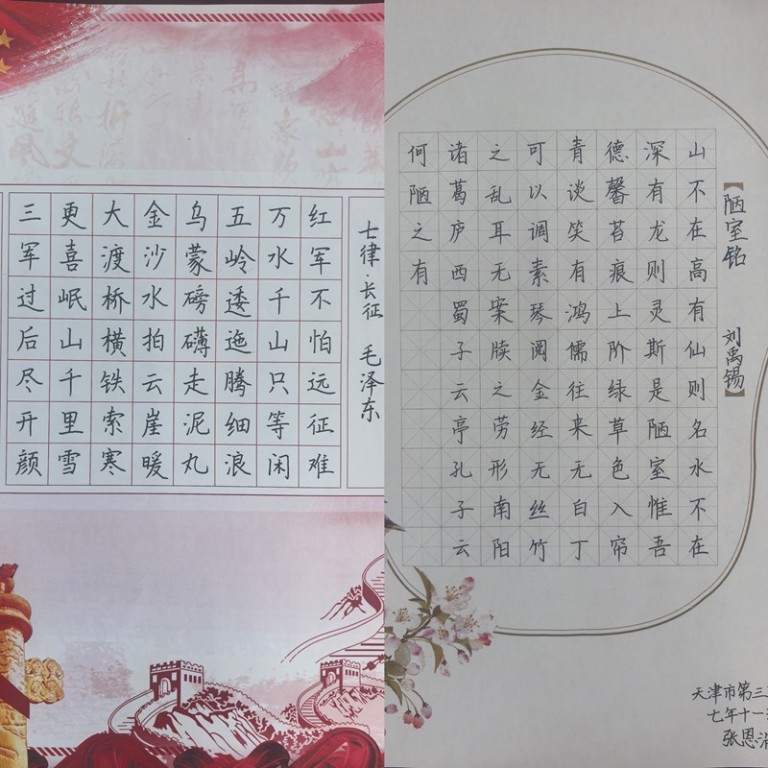 七律·长征 毛泽东
红军不怕远征难
万水千山只等闲
五岭逶迤腾细浪
乌蒙磅礴走泥丸
金沙水拍云崖暖
大渡桥横铁索寒
更喜岷山千里雪
三军过后尽开颜
【陋室铭 刘禹锡】
山不在高有仙则名水不在
深有龙则灵斯是陋室惟吾
德馨苔痕上阶绿草色入帘
青谈笑有鸿儒往来无白丁
可以调素琴阅金经无丝竹
之乱耳无案牍之劳形南阳
诸葛庐西蜀子云亭孔子云
何陋之有
天津市第三
七年十一
张恩